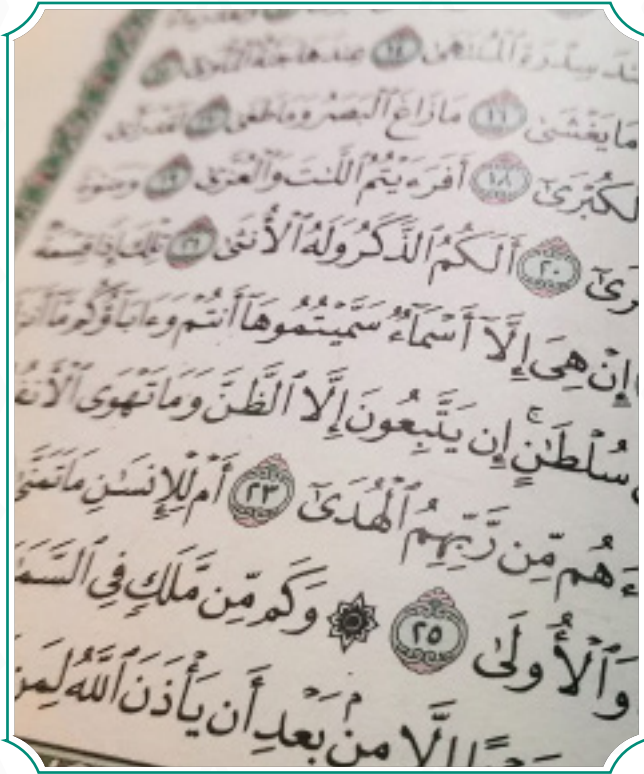 سِدْرَةِ ٱلْمُنتَهَىٰ ١٤ عِندَهَا جَنَّةُ ٱلْمَأْوَىٰ
مَا يَغْشَىٰ ١٦ مَا زَاغَ ٱلْبَصَرُ وَمَا طَغَىٰ
ٱلْكُبْرَىٰٓ ١٨ أَفَرَءَيْتُمُ ٱللَّٰتَ وَٱلْعُزَّىٰ ١٩ وَمَنَوٰةَ
٢٠ أَلَكُمُ ٱلذَّكَرُ وَلَهُ ٱلْأُنثَىٰ ٢١ تِلْكَ إِذًا قِسْمَةٌ
إِنْ هِىَ إِلَّآ أَسْمَآءٌ سَمَّيْتُمُوهَآ أَنتُمْ وَءَابَآؤُكُم مَّآ
سُلْطَٰنٍ ۚ إِن يَتَّبِعُونَ إِلَّا ٱلظَّنَّ وَمَا تَهْوَى
هُم مِّن رَّبِّهِمُ ٱلْهُدَىٰٓ ٢٣ أَمْ لِلْإِنسَٰنِ مَا تَمَنَّىٰ
وَٱلْأُولَىٰ ٢٥ ۞ وَكَم مِّن مَّلَكٍ فِى
إِلَّا مِنۢ بَعْدِ أَن يَأْذَنَ ٱللَّهُ لِمَن